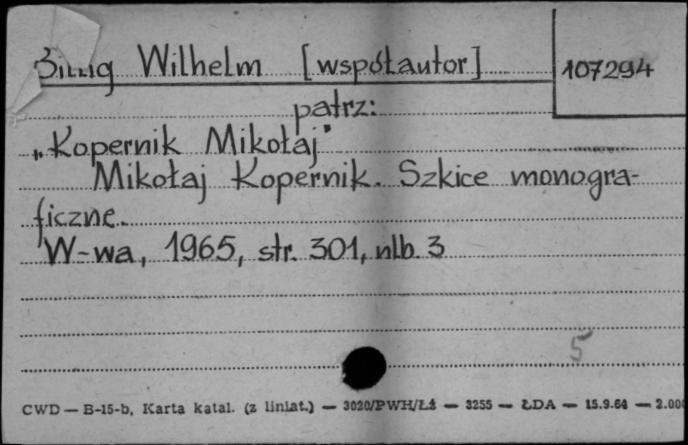 Billig Wilhelm [współautor] 107294
patrz:
„Kopernik Mikołaj"
Mikołaj Kopernik. Szkice monogra-
ficzne.
W-wa, 1965, str. 301, nlb. 3
5
CWD — B-15-b, Karta katal. (z liniat.) — 3020/PWH/Łż — 3255 — ŁDA — 15.9.64 — 2.000